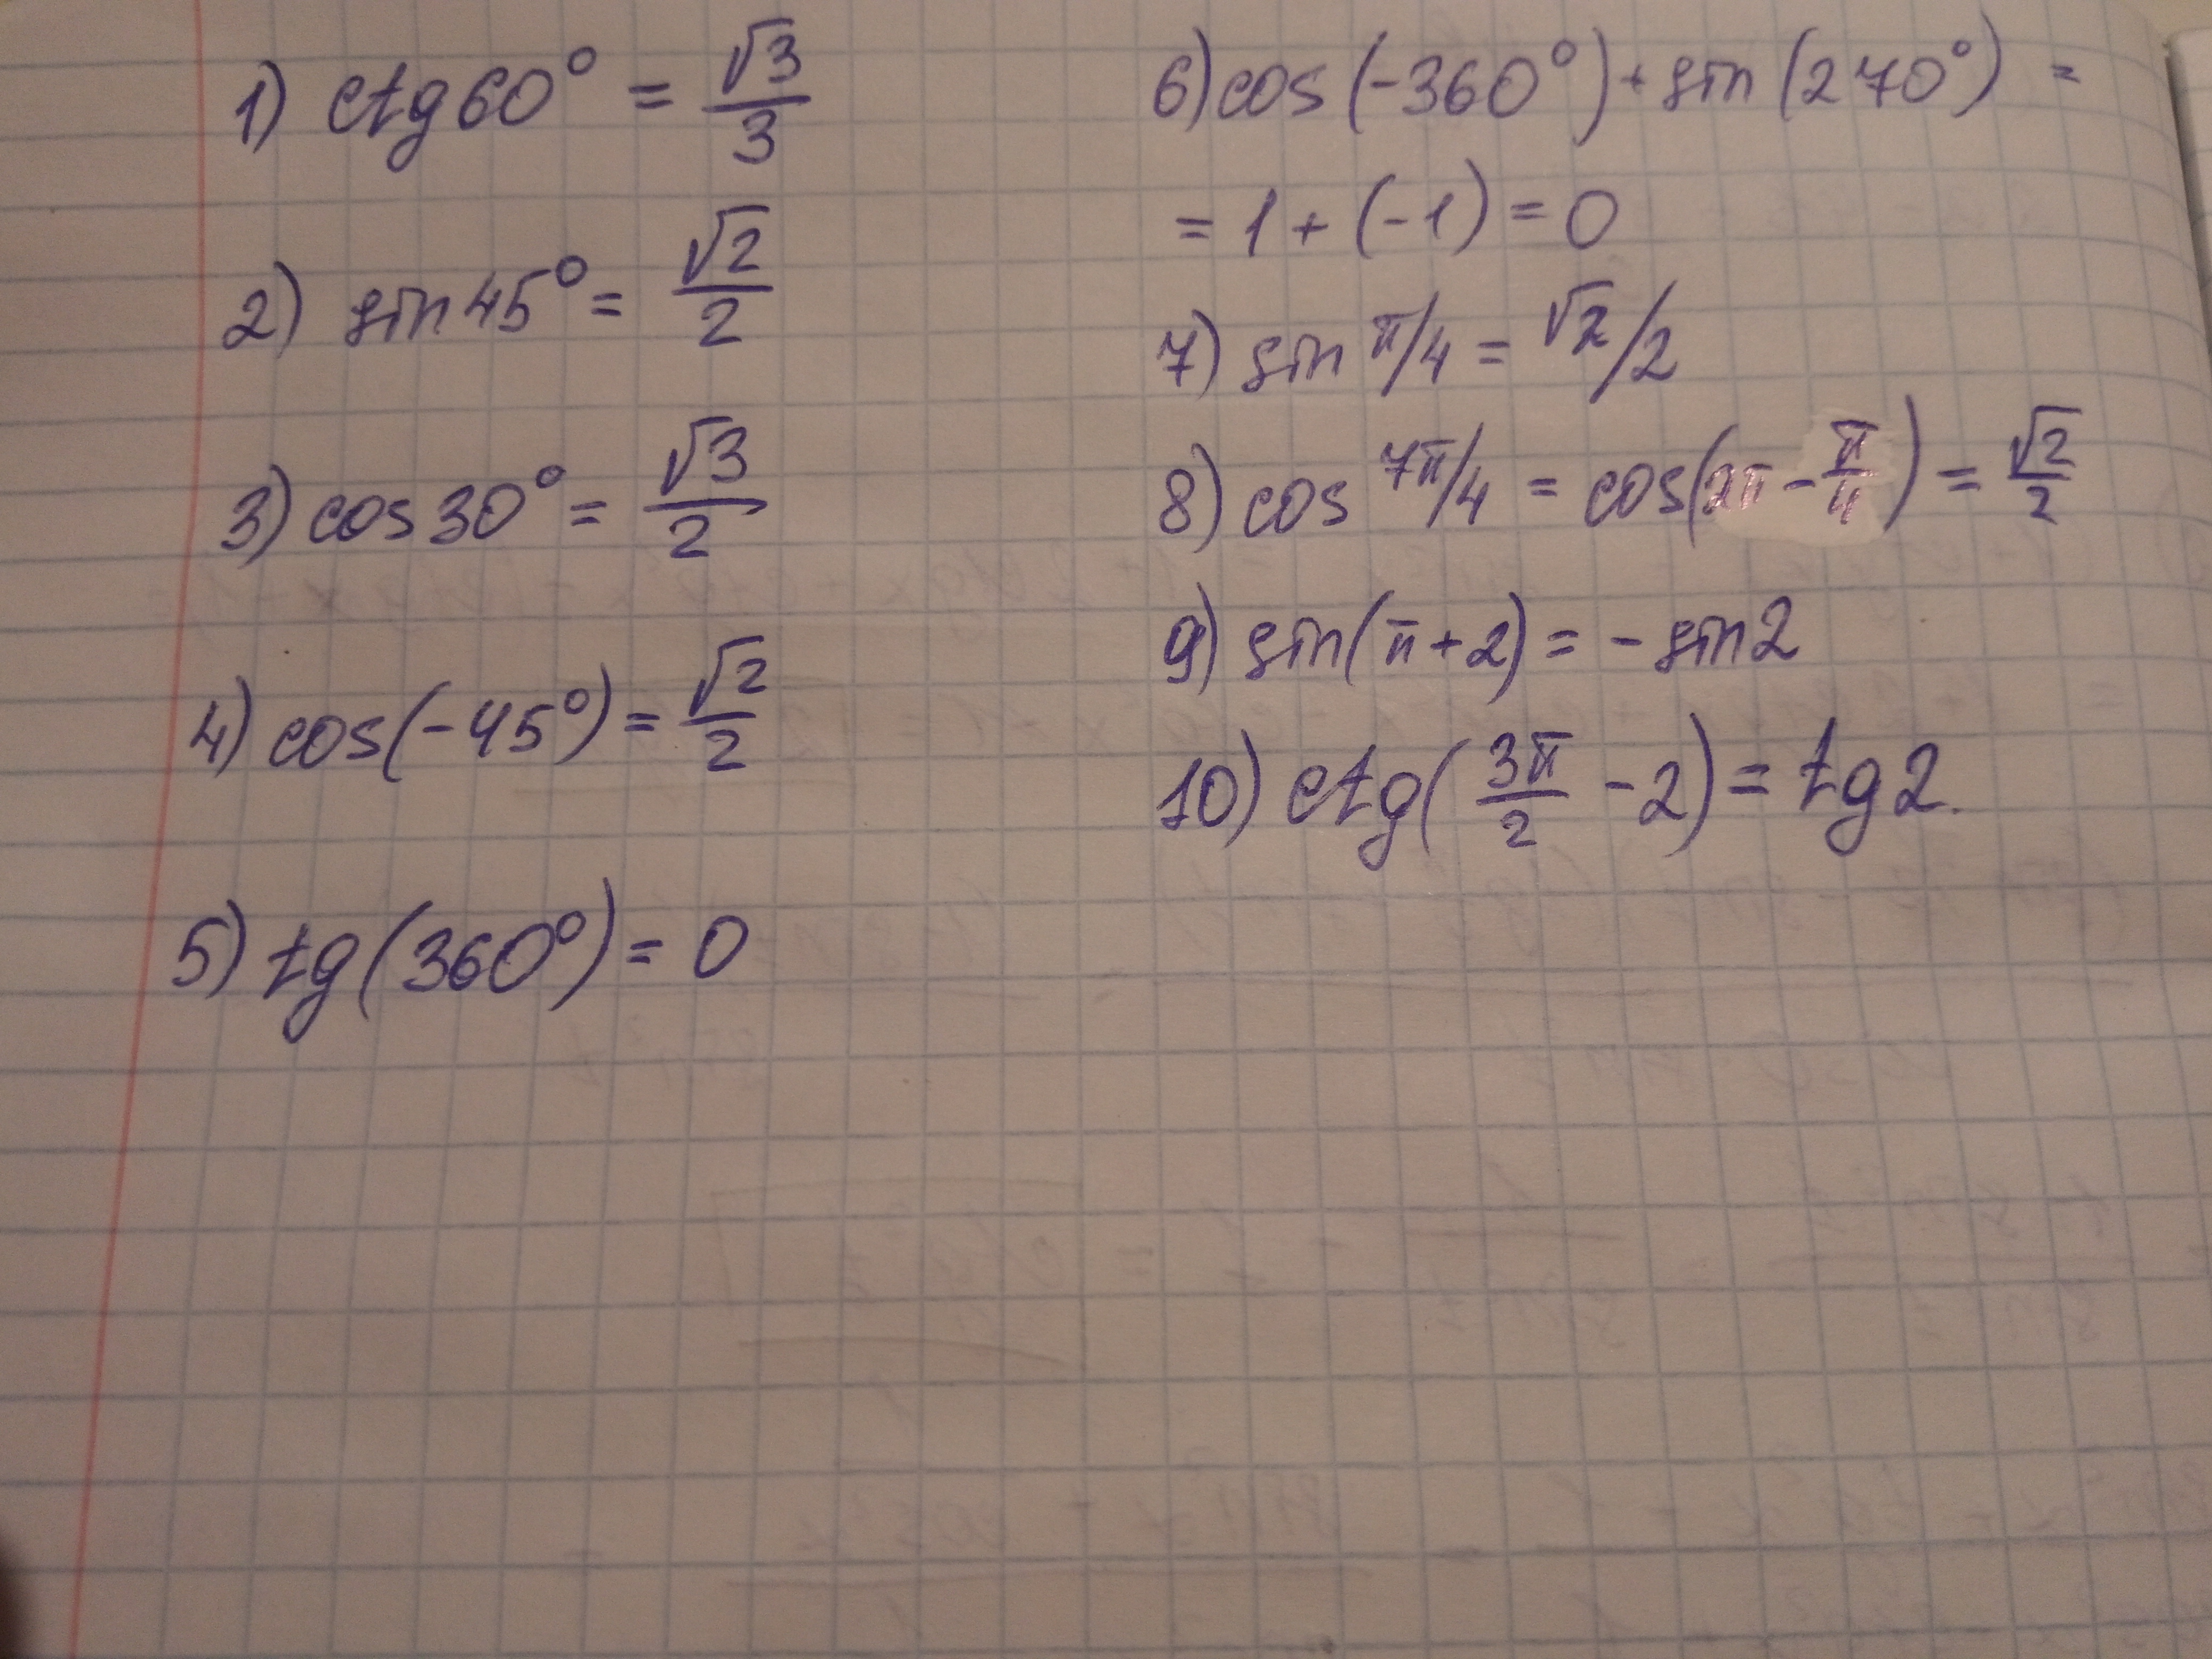 1) ctg 60° = √3/3
2) sin 45° = √2/2
3) cos 30° = √3/2
4) cos(-45°) = √2/2
5) tg(360°) = 0
6) cos(-360°) + sin(270°) =
= 1 + (-1) = 0
7) sin π/4 = √2/2
8) cos 7π/4 = cos(2π - π/4) = √2/2
9) sin(π + 2) = - sin 2
10) ctg(3π/2 - 2) = tg 2.